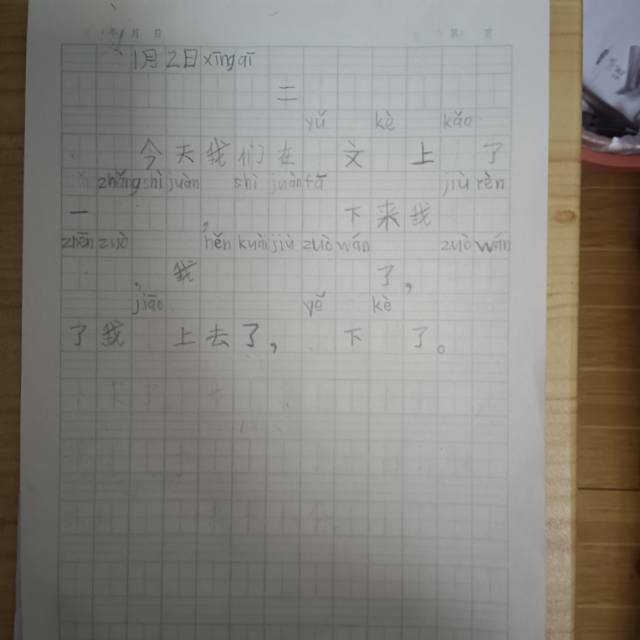 1月2日xīngqī
二
yǔ kè kǎo
今天我们在文上了
zhāng shì juàn shì juàn fā jiù rèn
一 下来我
zhēn zuò hěn kuài jiù zuò wán zuò wán
我 了，
jiāo yě kè
了我上去了，下了。